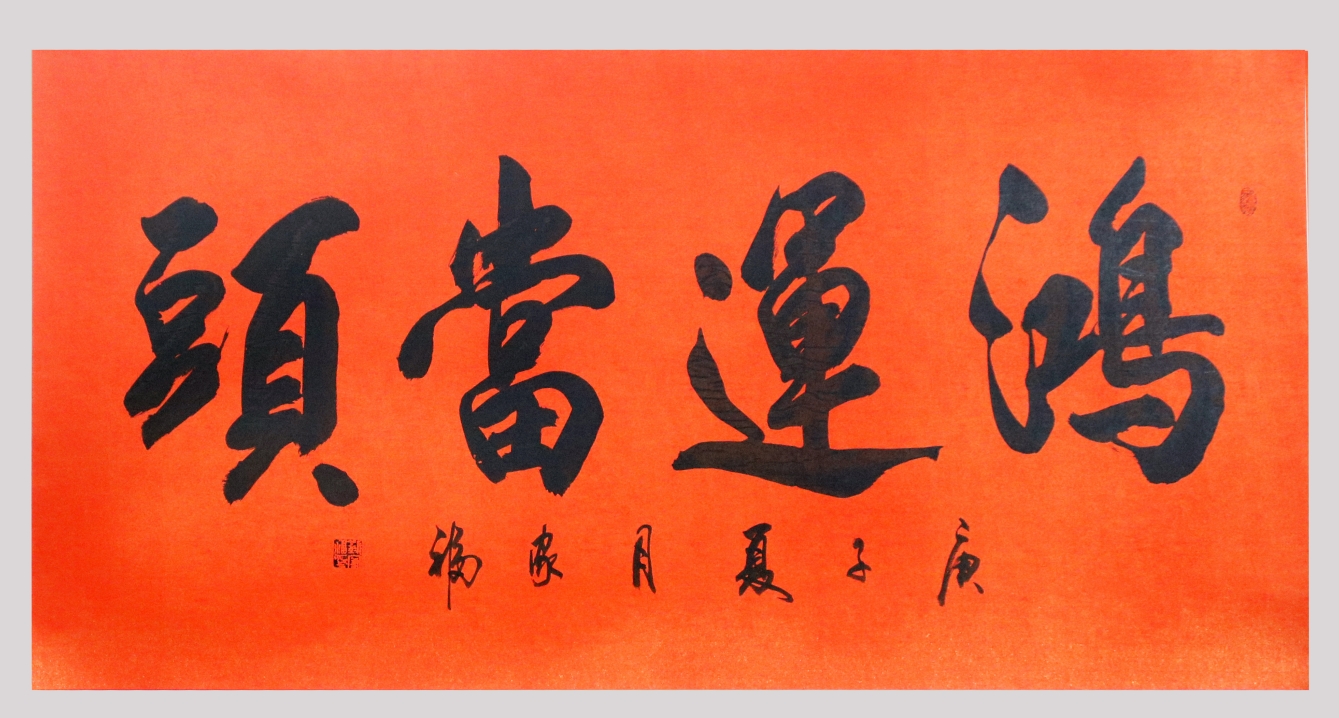 鴻運當頭
庚子夏月家福